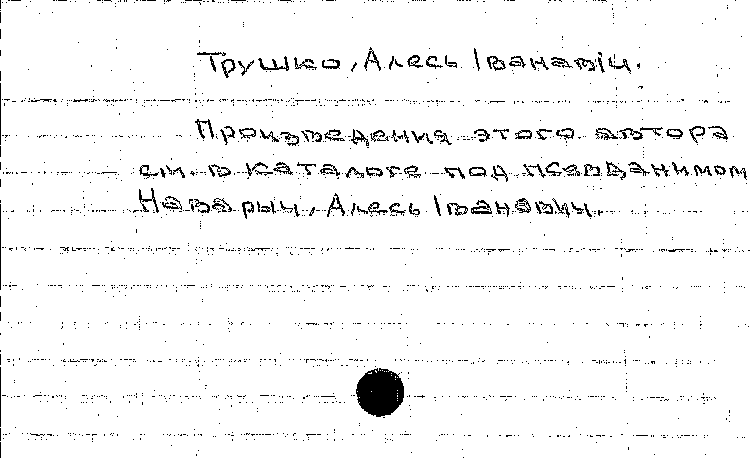 Трушко, Алесь Іванавіч.
Произведения этого автора
см. в каталоге под псевданимом
Наварыч, Алесь Іванавич.